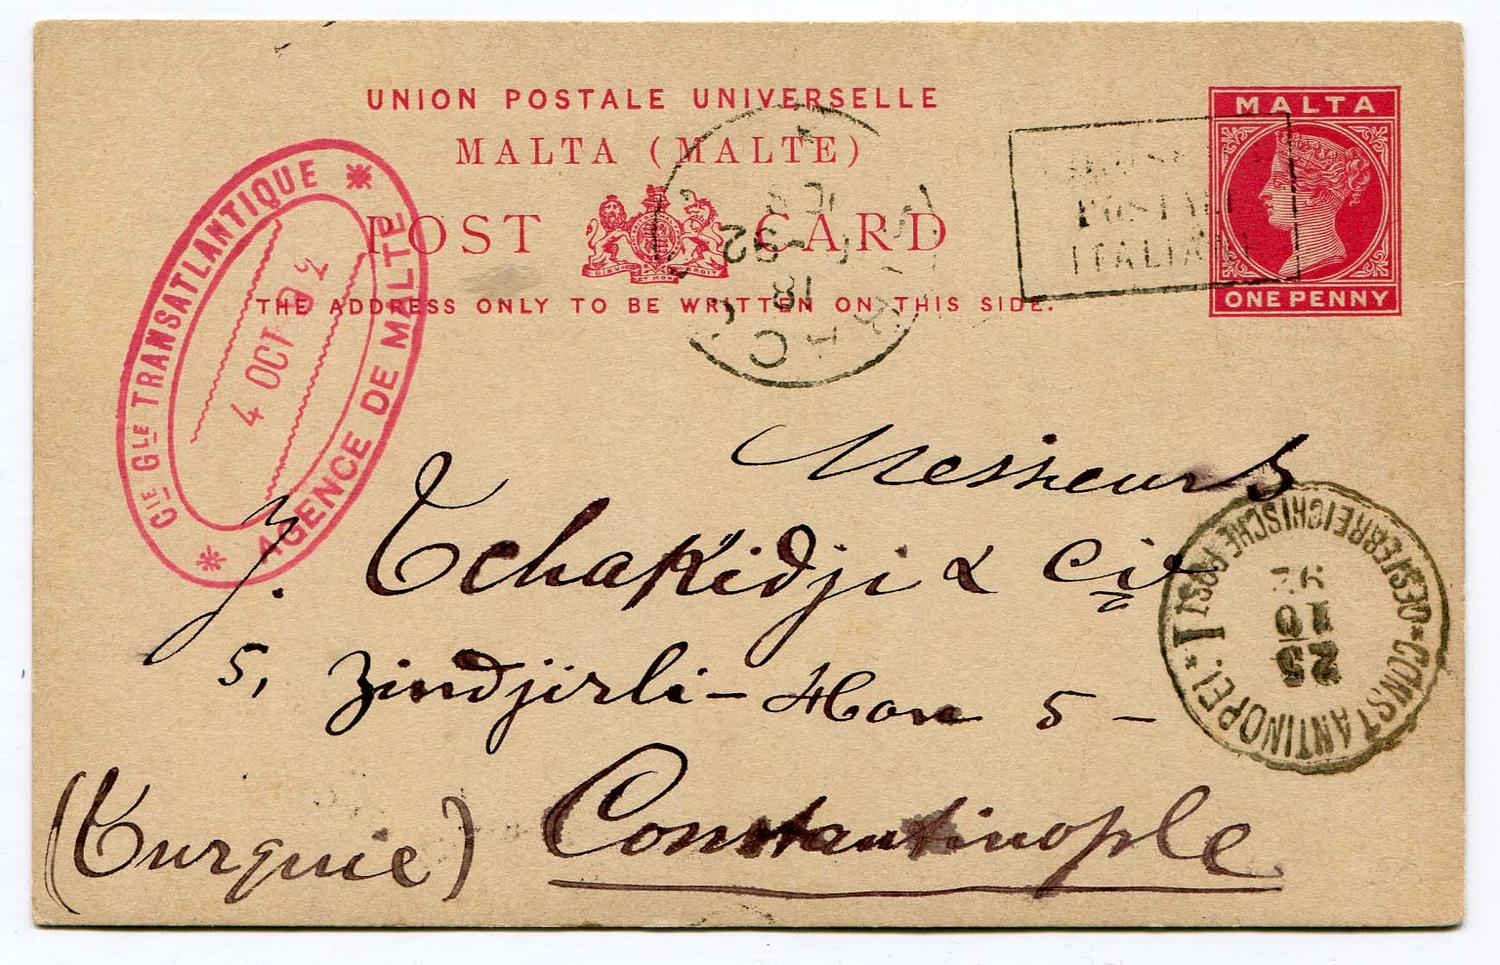 UNION POSTALE UNIVERSELLE
MALTA (MALTE)
POST CARD
THE ADDRESS ONLY TO BE WRITTEN ON THIS SIDE.
MALTA
ONE PENNY
CIE GLE TRANSATLANTIQUE
4 OCT 92
AGENCE DE MALTE
POSTALI
ITALIANI
18
92
Messieurs
J. Tchakidji & Cie
5, Zindjirli-Han 5-
Constantinople
(Turquie)
CONSTANTINOPEL I
OESTERREICHISCHE POST
25
10
92